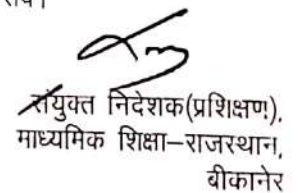 संयुक्त निदेशक(प्रशिक्षण),
माध्यमिक शिक्षा–राजस्थान,
बीकानेर